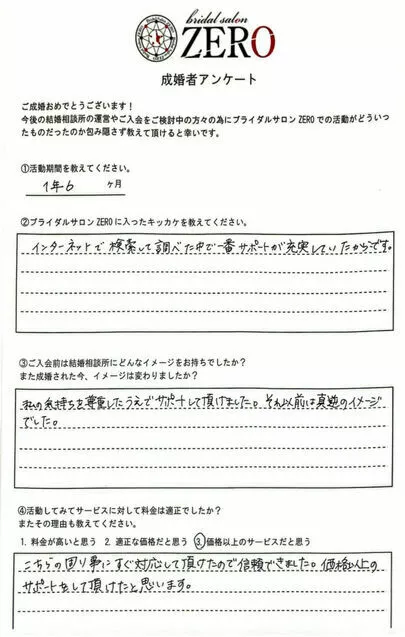 bridal salon
ZERO
成婚者アンケート
ご成婚おめでとうございます！
今後の結婚相談所の運営やご入会をご検討中の方々の為にブライダルサロンZEROでの活動がどういっ
たものだったのか包み隠さず教えて頂けると幸いです。
①活動期間を教えてください。
1年6 ヶ月
②ブライダルサロンZEROに入ったキッカケを教えてください。
インターネットで検索して調べた中で一番サポートが充実していたからです。
③ご入会前は結婚相談所にどんなイメージをお持ちでしたか？
また成婚された今、イメージは変わりましたか？
私の気持ちを尊重したうえでサポートして頂けました。それ以前は真逆のイメージ
でした。
④活動してみてサービスに対して料金は適正でしたか？
またその理由も教えてください。
1. 料金が高いと思う 2. 適正な価格だと思う 3. 価格以上のサービスだと思う
こちらの困り事にすぐ対応して頂けたので信頼できました。価格以上の
サポートをして頂けたと思います。